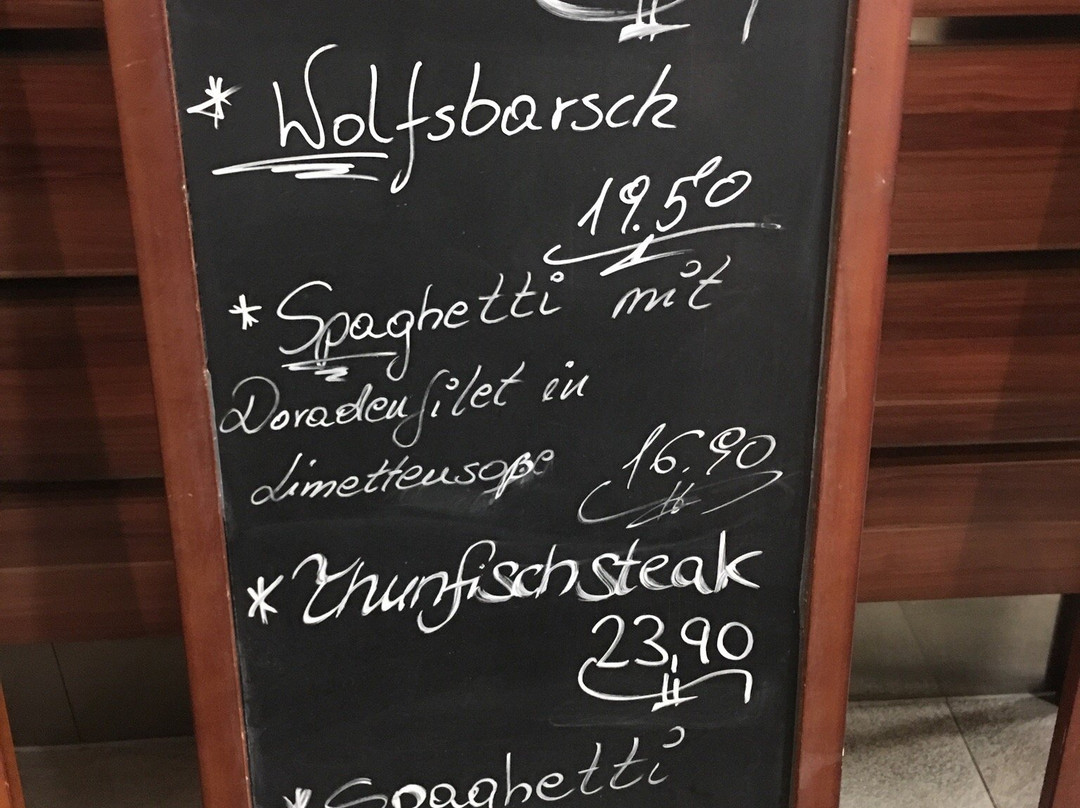 * Wolfsbarsch
19.50
* Spaghetti mit
Doradenfilet in
Limettensoße
16.90
* Thunfischsteak
23,90
* Spaghetti